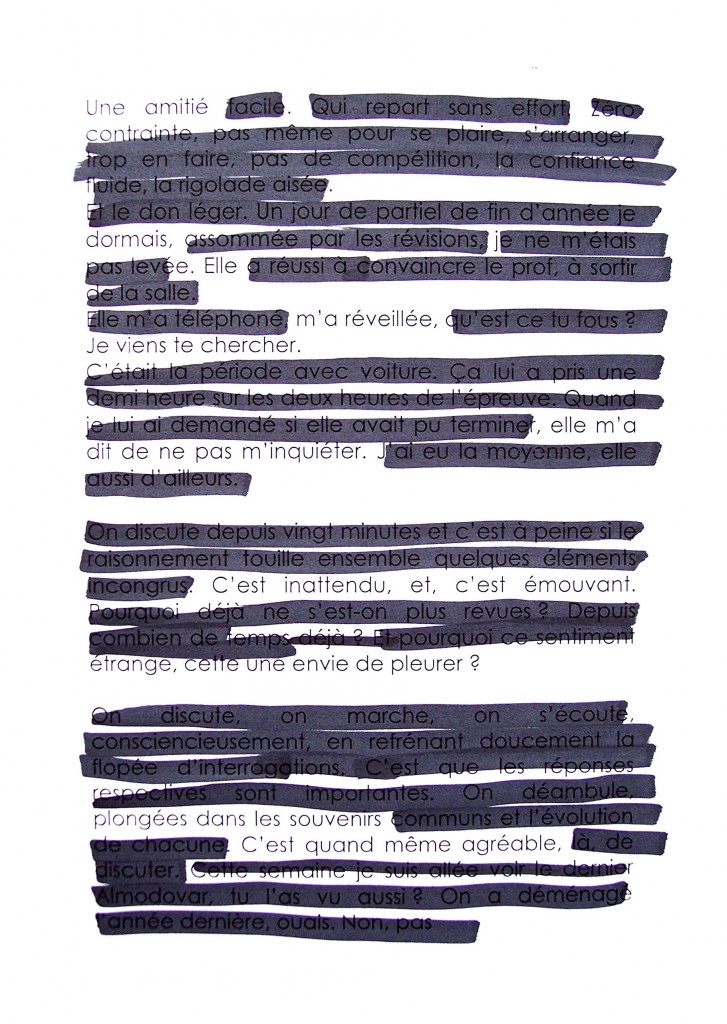 Une amitié facile. Qui repart sans effort. Zéro
contrainte, pas même pour se plaire, s'arranger,
trop en faire, pas de compétition, la confiance
fluide, la rigolade aisée.
Et le don léger. Un jour de partiel de fin d'année je
dormais, assommée par les révisions, je ne m'étais
pas levée. Elle a réussi à convaincre le prof, à sortir
de la salle.
Elle m'a téléphoné, m'a réveillée, qu'est ce tu fous ?
Je viens te chercher.
C'était la période avec voiture. Ça lui a pris une
demi heure sur les deux heures de l'épreuve. Quand
je lui ai demandé si elle avait pu terminer, elle m'a
dit de ne pas m'inquiéter. J'ai eu la moyenne, elle
aussi d'ailleurs.
On discute depuis vingt minutes et c'est à peine si le
raisonnement touille ensemble quelques éléments
incongrus. C'est inattendu, et, c'est émouvant.
Pourquoi déjà ne s'est-on plus revues ? Depuis
combien de temps déjà ? Et pourquoi ce sentiment
étrange, cette une envie de pleurer ?
On discute, on marche, on s'écoute,
consciencieusement, en refrénant doucement la
flopée d'interrogations. C'est que les réponses
respectives sont importantes. On déambule,
plongées dans les souvenirs communs et l'évolution
de chacune. C'est quand même agréable, là, de
discuter. Cette semaine je suis allée voir le dernier
Almodovar, tu l'as vu aussi ? On a déménagé
l'année dernière, ouais. Non, pas